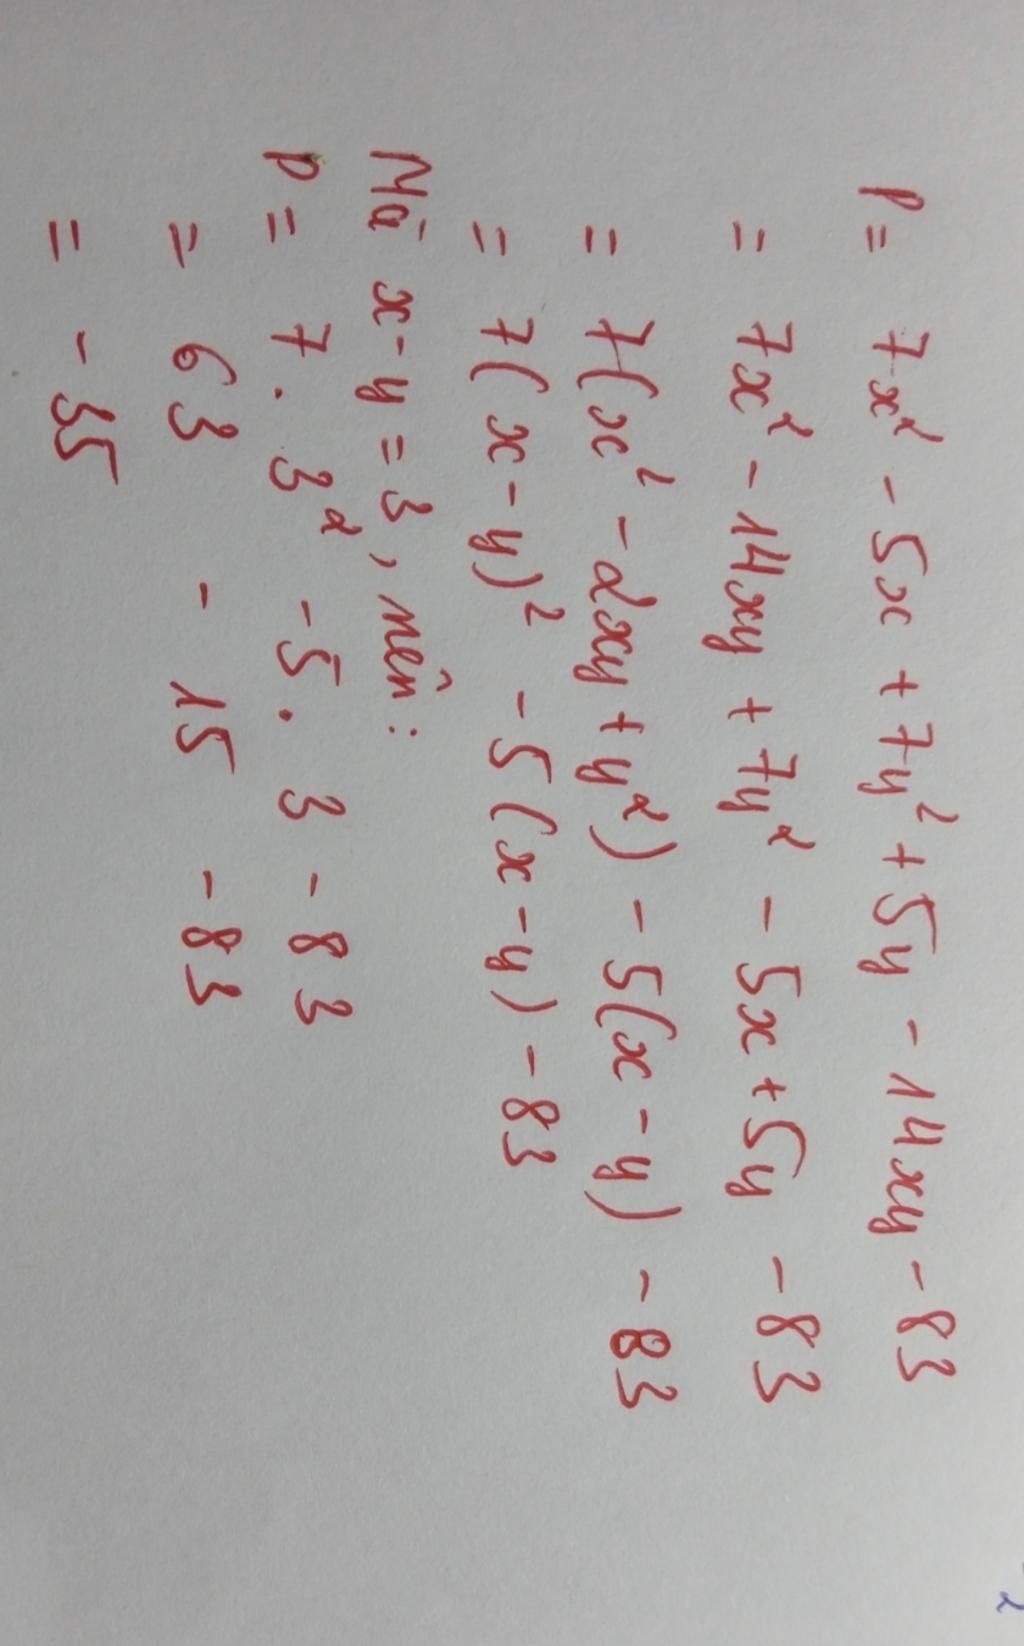 P = 7x² - 5x + 7y² + 5y - 14xy - 83
= 7x² - 14xy + 7y² - 5x + 5y - 83
= 7(x² - 2xy + y²) - 5(x - y) - 83
= 7(x - y)² - 5(x - y) - 83
Mà x - y = 3, nên:
P = 7 . 3² - 5 . 3 - 83
= 63 - 15 - 83
= - 35